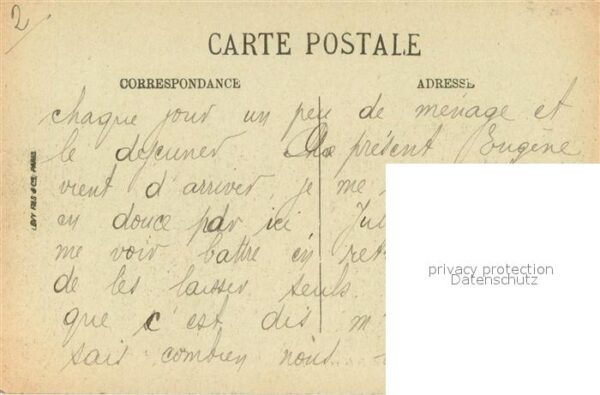 2
CARTE POSTALE
CORRESPONDANCE
ADRESSE
chaque jour un peu de ménage et
le dejeuner. présent Eugène
vient d'arriver, je me
en douce par ici Jul
me voir battre en ret
de les laisser seuls.
que c'est dis m'
sais combien nous
LEVY FILS & CIE, PARIS
privacy protection
Datenschutz